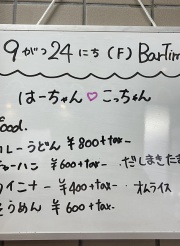 9がつ24にち (F) BarTim
はーちゃん♡こっちゃん
food.
カレーうどん ¥800+tax-
チャーハン ¥600+tax- だしまきたま
ウインナー ¥400+tax- オムライス
そうめん ¥600+tax-